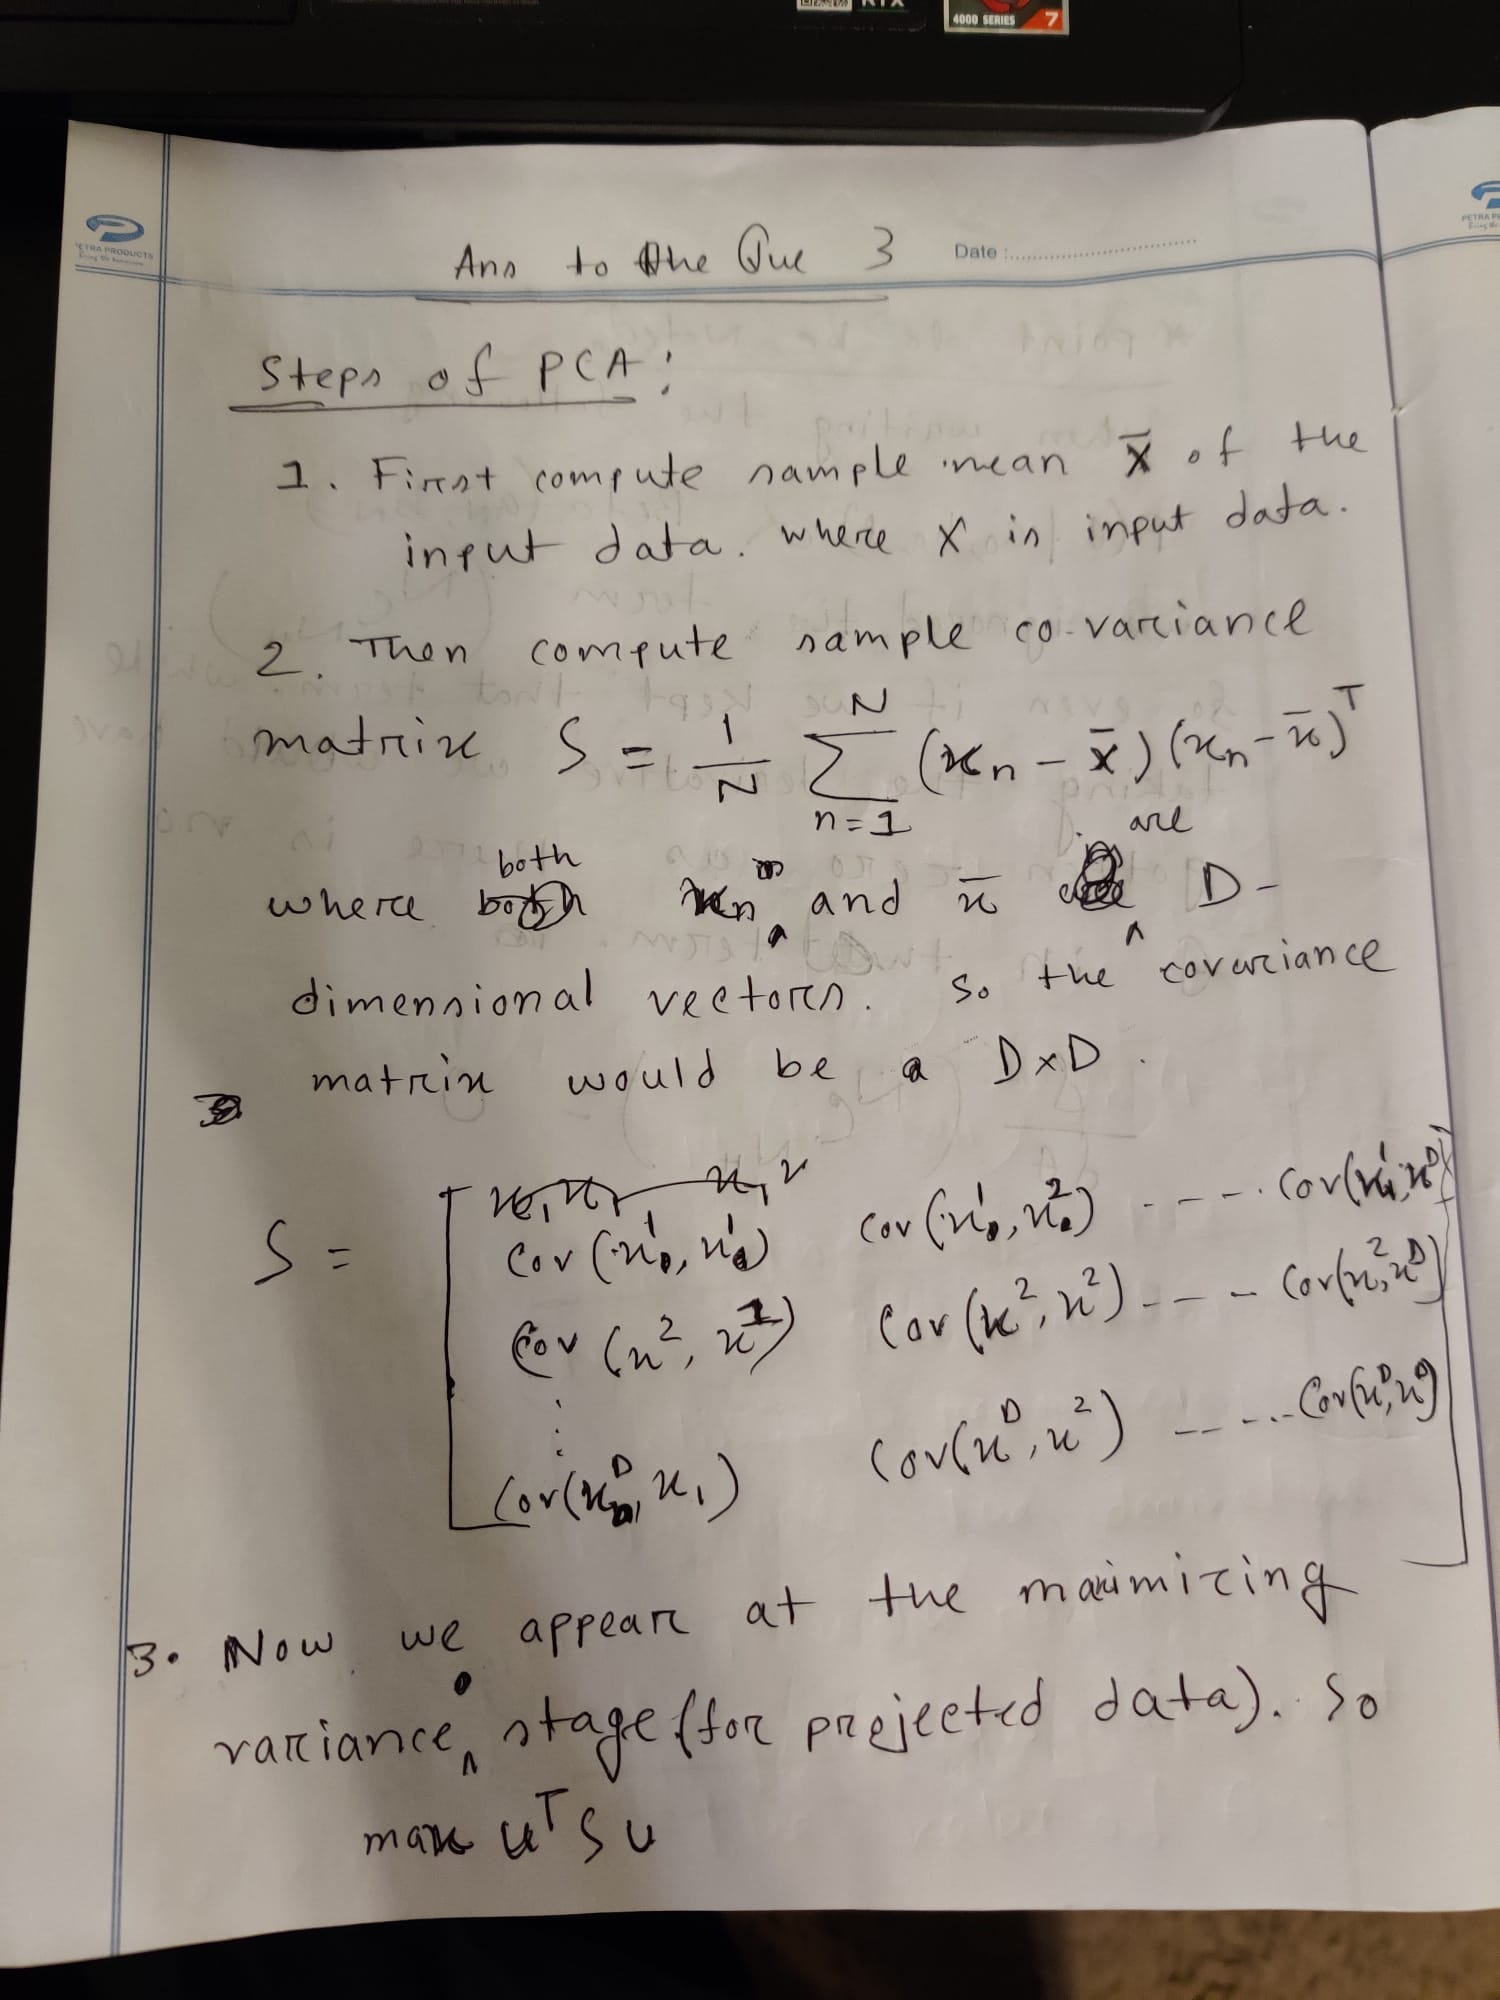 RTX
4000 SERIES 7
PETRA PRODUCTS
Ans to the Que 3
Date :
Steps of PCA:
1. First compute sample mean x̄ of the
input data. where X is input data.
2. Then compute sample co-variance
matrix S = 1/N ∑_{n=1}^{N} (x_n - x̄)(x_n - x̄)^T
where both x_n and x̄ are D-
dimensional vectors. So the covariance
matrix would be a D×D.
S = [ Cov(x^1, x^1) Cov(x^1, x^2) ---- Cov(x^1, x^D)
Cov(x^2, x^1) Cov(x^2, x^2) --- Cov(x^2, x^D)
⋮
Cov(x^D, x_1) Cov(x^D, x^2) ----- Cov(x^D, x^D) ]
3. Now we appear at the maximizing
variance stage (for projected data). So
max u^T S u